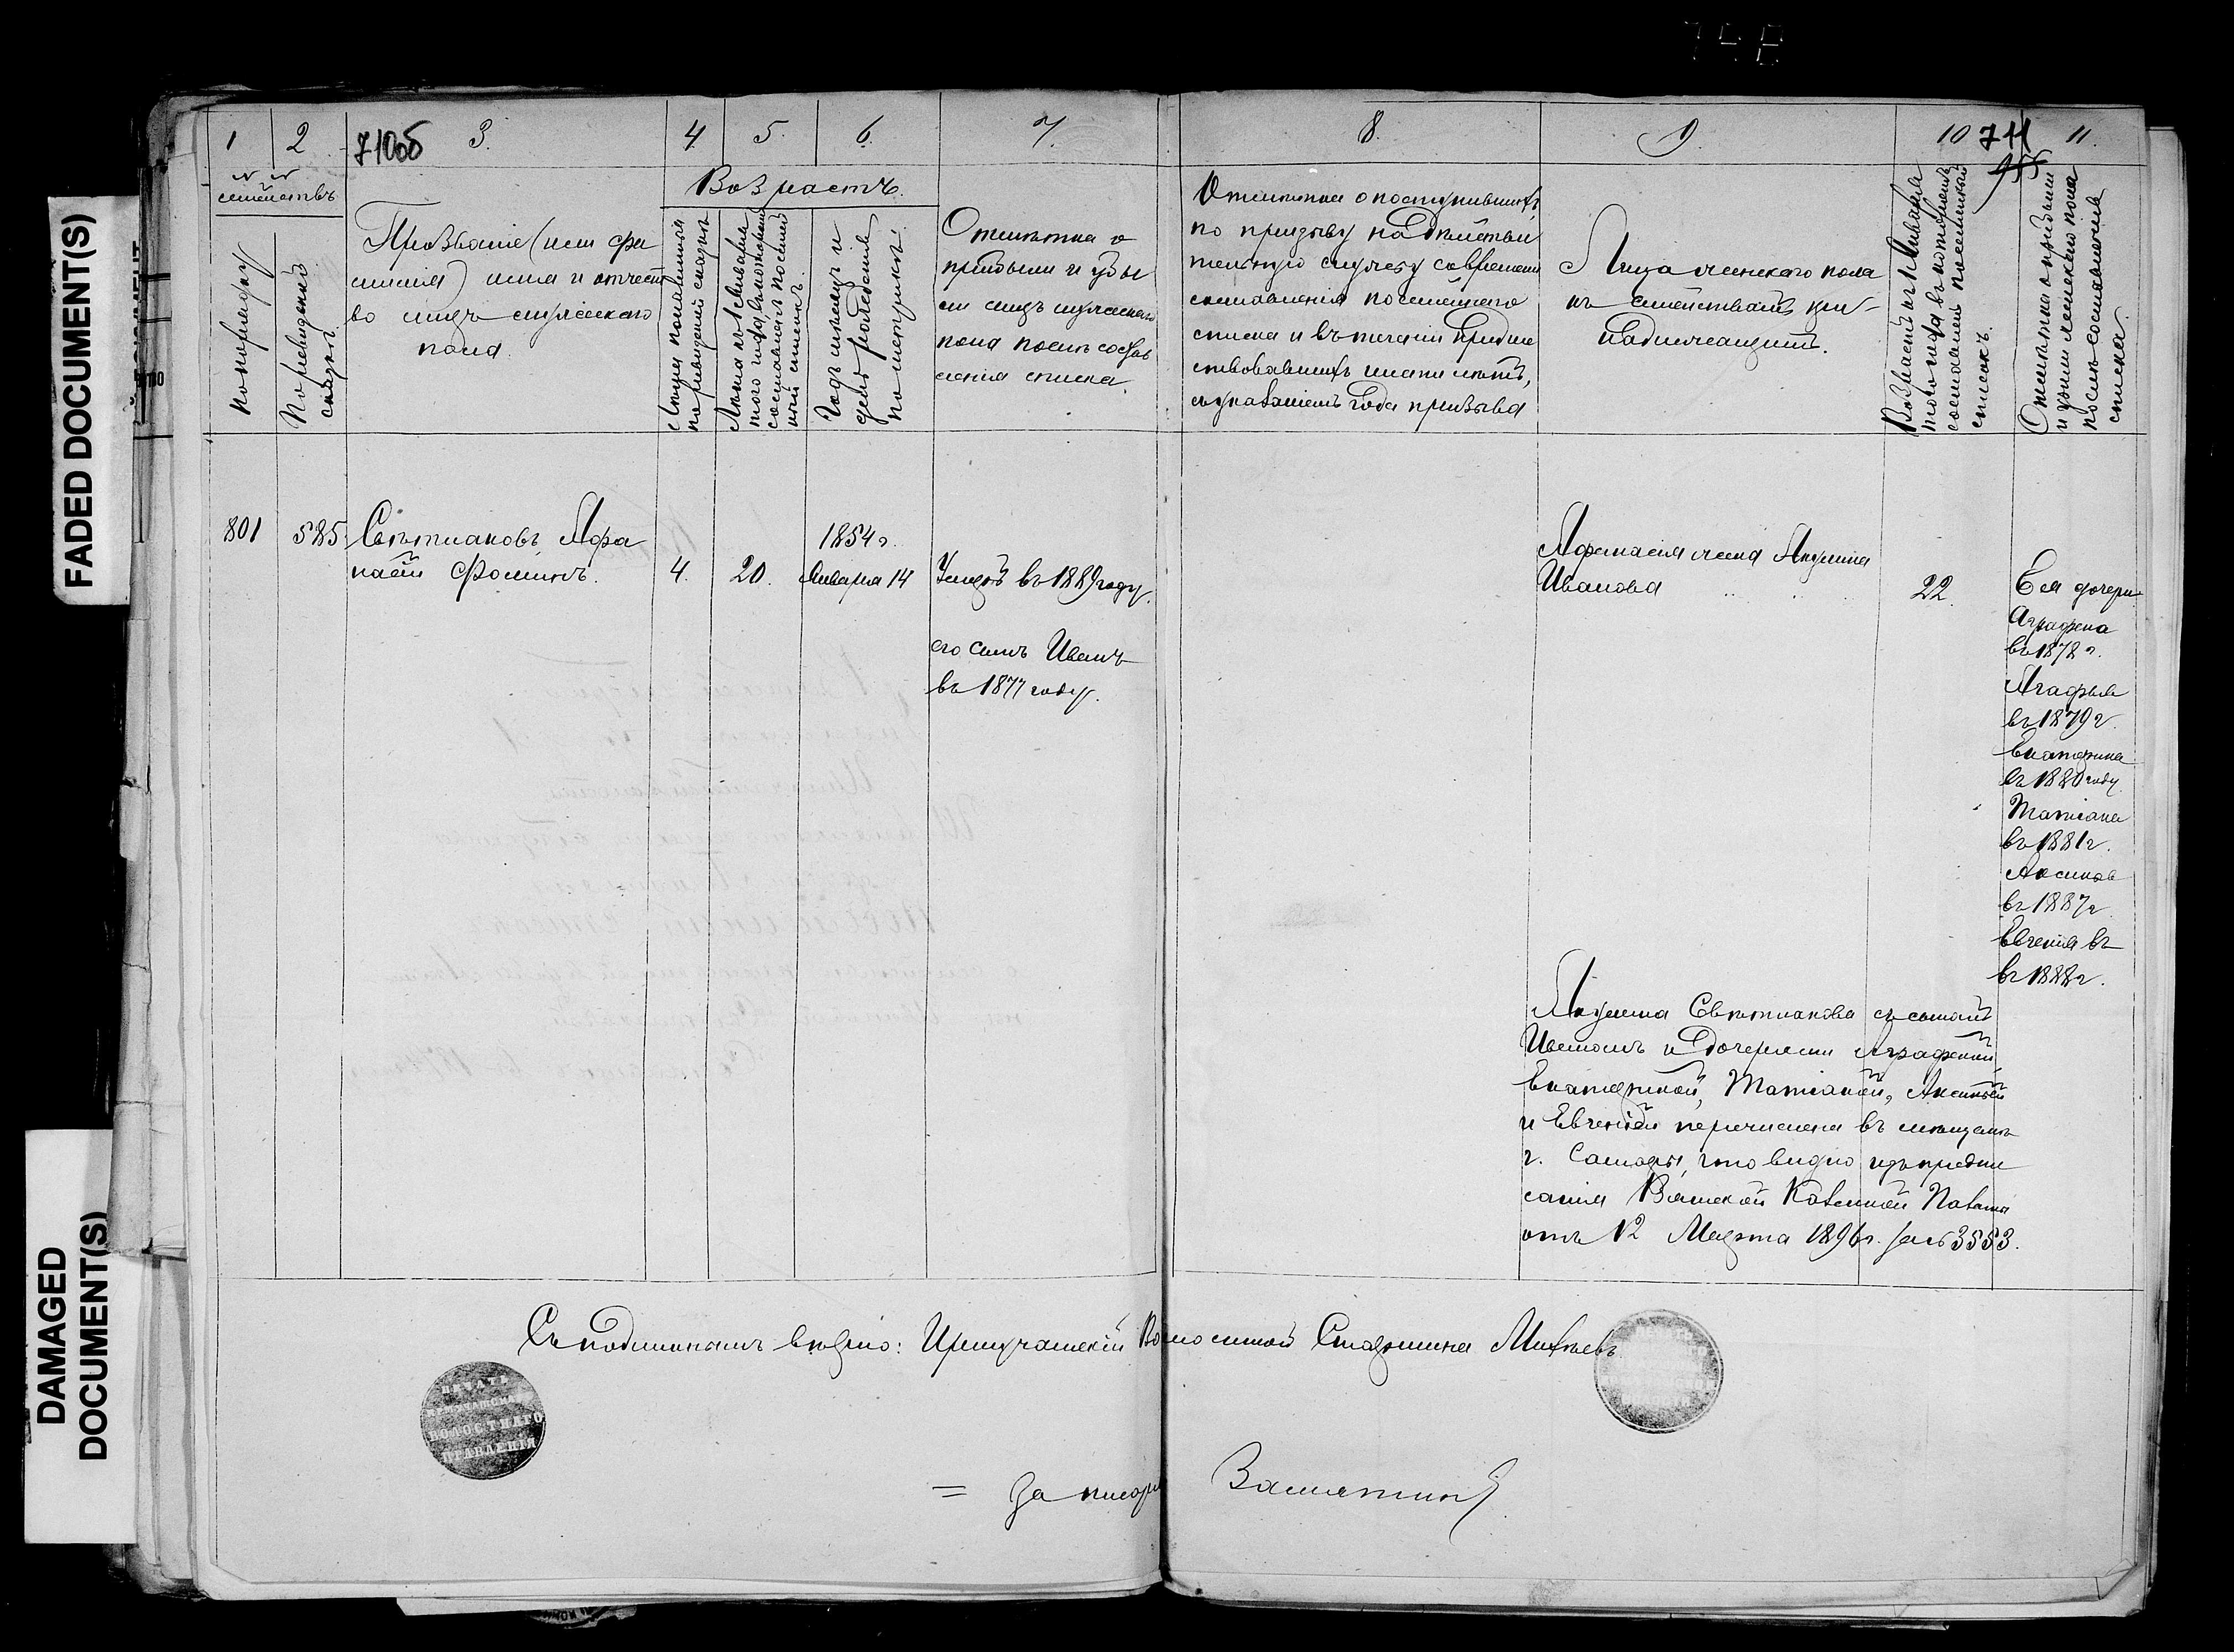 FADED DOCUMENT(S)
DAMAGED
DOCUMENT(S)
1
2
710об
3.
4.
5.
6.
7.
8.
9.
10
711
11.
№ №
семействъ
По порядку
По ревизской
сказкѣ.
Прозваніе (или фа
милія) имя и отчест
во лицъ мужскаго
пола.
Возрастъ.
Лѣта показанныя
по ревизской сказкѣ
Лѣта къ 1 Января
того года, въ которомъ
составленъ посемей
ный списокъ.
Годъ, мѣсяцъ и
день рожденія
по метрикѣ.
Отмѣтка о
прибыли и убы
ли лицъ мужскаго
пола послѣ состав
ленія списка.
Отмѣтка о поступившихъ
по призыву на дѣйстви
тельную службу со времени
составленія посемейнаго
списка и въ теченіи предше
ствовавшихъ шести лѣтъ,
съ указаніемъ года призыва
Лица женскаго пола
къ семействамъ при-
надлежащія.
Возрастъ къ 1 Января
того года въ которомъ
составленъ посемейный
списокъ.
Отмѣтка о прибыли
и убыли женскаго пола
послѣ составленія
списка.
801
585.
Свѣтлаковъ Афа
насій Фоминъ.
4.
20.
1854 г.
Января 14
Умеръ въ 1889 году.
его сынъ Иванъ
въ 1877 году.
Афанасія жена Акулина
Иванова
22.
Ея дочери
Аграфена
въ 1878 г.
Агафья
въ 1879 г.
Екатерина
въ 1880 году
Татіана
въ 1881 г.
Аксинья
въ 1887 г.
Евгенія въ
въ 1888 г.
Акулина Свѣтлакова съ сыномъ
Иваномъ и дочерями Аграфеной,
Екатериной, Татіаной, Аксиньей
и Евгеніей перечислена въ мѣщане
г. Самары, что видно изъ предпи
санія Вятской Казенной Палаты
отъ 12 Марта 1896 г. за № 3553.
Съ подлиннымъ вѣрно: Ирмучашскій Волостной Старшина Михѣевъ
ПЕЧАТЬ
ВОЛОСТНАГО
ПРАВЛЕНІЯ
= За писаря Замятинъ